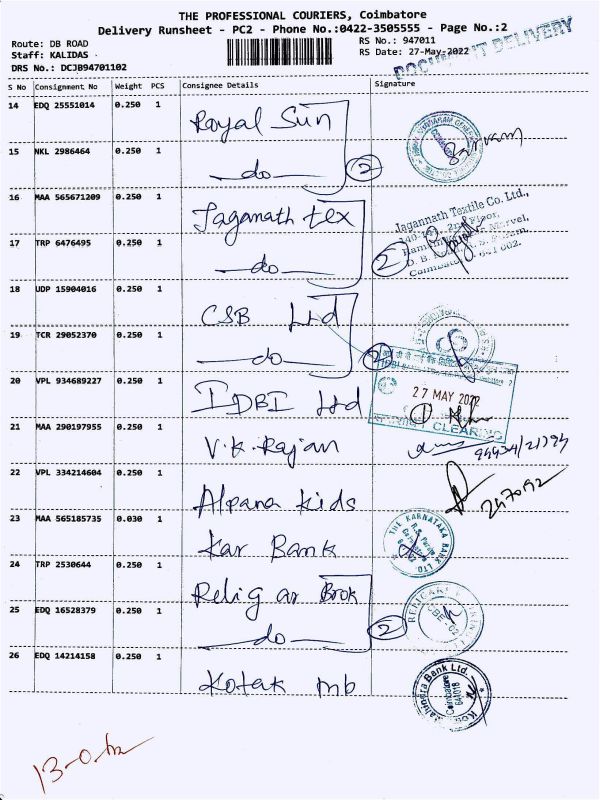 THE PROFESSIONAL COURIERS, Coimbatore
Delivery Runsheet - PC2 - Phone No.:0422-3505555 - Page No.:2
Route: DB ROAD
Staff: KALIDAS
DRS No.: DCJB94701102
RS No.: 947011
RS Date: 27-May-2022
DOCUMENT DELIVERY
S No Consignment No Weight PCS Consignee Details Signature
14 EDQ 25551014 0.250 1 Royal Sun
15 NKL 2986464 0.250 1 do 2
16 MAA 565671209 0.250 1 Jaganath tex
Jagannath Textile Co. Ltd.,
2nd Floor,
17 TRP 6476495 0.250 1 do 2
18 UDP 15904016 0.250 1 CSB Ltd
19 TCR 29052370 0.250 1 do 2
20 VPL 934689227 0.250 1 IDBI Ltd
27 MAY 2022
1
CLEARING
21 MAA 290197955 0.250 1 V.K. Rajan
22 VPL 334214604 0.250 1 Alpana kids
23 MAA 565185735 0.030 1 Kar Bank
THE KARNATAKA BANK LTD
24 TRP 2530644 0.250 1 Relig ar Brok
25 EDQ 16528379 0.250 1 do 2
26 EDQ 14214158 0.250 1 Kotak mb
Bank Ltd.
Coimbatore
641018